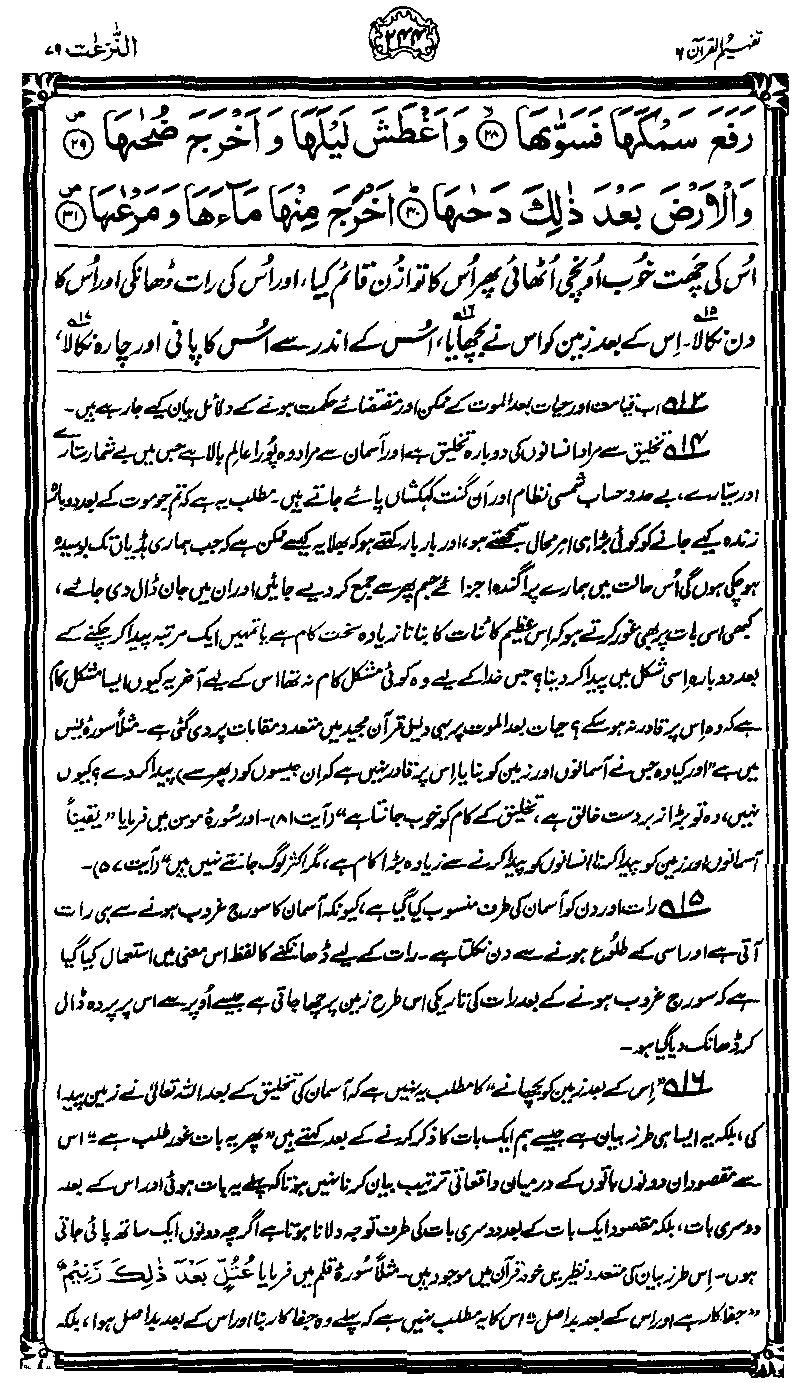 تفہیم القرآن ۶
۲۴۴
النّٰزعٰت ۷۹
رَفَعَ سَمْكَهَا فَسَوّٰىهَا ۙ﴿۲۸﴾ وَاَغْطَشَ لَيْلَهَا وَاَخْرَجَ ضُحٰىهَا ۪﴿۲۹﴾
وَالْاَرْضَ بَعْدَ ذٰلِكَ دَحٰىهَا ؕ﴿۳۰﴾ اَخْرَجَ مِنْهَا مَآءَهَا وَمَرْعٰىهَا ۪﴿۳۱﴾
اُس کی چھت خُوب اُونچی اُٹھائی پھر اُس کا توازُن قائم کیا، اور اُس کی رات ڈھانکی اور اُس کا
دن نکالا۱۵۔ اِس کے بعد زمین کو اس نے بچھایا۱۶، اُس کے اندر سے اُس کا پانی اور چارہ نکالا۱۷،
۱۳ اب قیامت اور حیات بعد الموت کے ممکن اور مقتضائے حکمت ہونے کے دلائل بیان کیے جا رہے ہیں۔
۱۴ تخلیق سے مراد انسانوں کی دوبارہ تخلیق ہے اور آسمان سے مراد وہ پُورا عالمِ بالا ہے جس میں بے شمار ستارے
اور سیّارے، بے حد و حساب شمسی نظام اور اَن گنت کہکشاں پائے جاتے ہیں۔ مطلب یہ ہے کہ تم جو موت کے بعد دوبارہ
زندہ کیے جانے کو کوئی بڑا ہی امرِ محال سمجھتے ہو، اور بار بار کہتے ہو کہ بھلا یہ کیسے ممکن ہے کہ جب ہماری ہڈیاں تک بوسیدہ
ہو چکی ہوں گی اُس حالت میں ہمارے پراگندہ اجزائے جسم پھر سے جمع کر دیے جائیں اور ان میں جان ڈال دی جائے،
کبھی اس بات پر بھی غور کرتے ہو کہ اِس عظیم کائنات کا بنانا زیادہ سخت کام ہے یا تمہیں ایک مرتبہ پیدا کر چکنے کے
بعد دوبارہ اِسی شکل میں پیدا کر دینا؟ جس خدا کے لیے وہ کوئی مشکل کام نہ تھا اس کے لیے آخر یہ کیوں ایسا مشکل کام
ہے کہ وہ اِس پر قادر نہ ہو سکے؟ حیات بعد الموت پر یہی دلیل قرآن مجید میں متعدد مقامات پر دی گئی ہے۔ مثلاً سورۂ یٰس
میں ہے "اور کیا وہ جس نے آسمانوں اور زمین کو بنایا اِس پر قادر نہیں ہے کہ ان جیسوں کو (پھر سے) پیدا کر دے؟ کیوں
نہیں، وہ تو بڑا زبردست خالق ہے، تخلیق کے کام کو خوب جانتا ہے" (آیت ۸۱)۔ اور سُورۂ مومن میں فرمایا "یقیناً
آسمانوں اور زمین کو پیدا کرنا انسانوں کو پیدا کرنے سے زیادہ بڑا کام ہے، مگر اکثر لوگ جانتے نہیں ہیں" (آیت ۵۷)۔
۱۵ رات اور دن کو آسمان کی طرف منسوب کیا گیا ہے، کیونکہ آسمان کا سورج غروب ہونے سے ہی رات
آتی ہے اور اسی کے طلُوع ہونے سے دن نکلتا ہے۔ رات کے لیے ڈھانکنے کا لفظ اس معنی میں استعمال کیا گیا
ہے کہ سورج غروب ہونے کے بعد رات کی تاریکی اس طرح زمین پر چھا جاتی ہے جیسے اُوپر سے اس پر پردہ ڈال
کر ڈھانک دیا گیا ہو۔
۱۶ "اِس کے بعد زمین کو بچھانے" کا مطلب یہ نہیں ہے کہ آسمان کی تخلیق کے بعد اللہ تعالیٰ نے زمین پیدا
کی، بلکہ یہ ایسا ہی طرزِ بیان ہے جیسے ہم ایک بات کا ذکر کرنے کے بعد کہتے ہیں "پھر یہ بات غور طلب ہے"۔ اس
سے مقصود ان دونوں باتوں کے درمیان واقعاتی ترتیب بیان کرنا نہیں ہوتا کہ پہلے یہ بات ہوئی اور اس کے بعد
دوسری بات، بلکہ مقصود ایک بات کے بعد دوسری بات کی طرف توجہ دلانا ہوتا ہے اگرچہ دونوں ایک ساتھ پائی جاتی
ہوں۔ اِس طرزِ بیان کی متعدد نظیریں خود قرآن میں موجود ہیں۔ مثلاً سُورۂ قلم میں فرمایا عُتُلٍّ بَعْدَ ذٰلِكَ زَنِيْمٍ
"جفا کار ہے اور اس کے بعد بد اصل"۔ اس کا یہ مطلب نہیں ہے کہ پہلے وہ جفا کار بنا اور اس کے بعد بد اصل ہوا، بلکہ